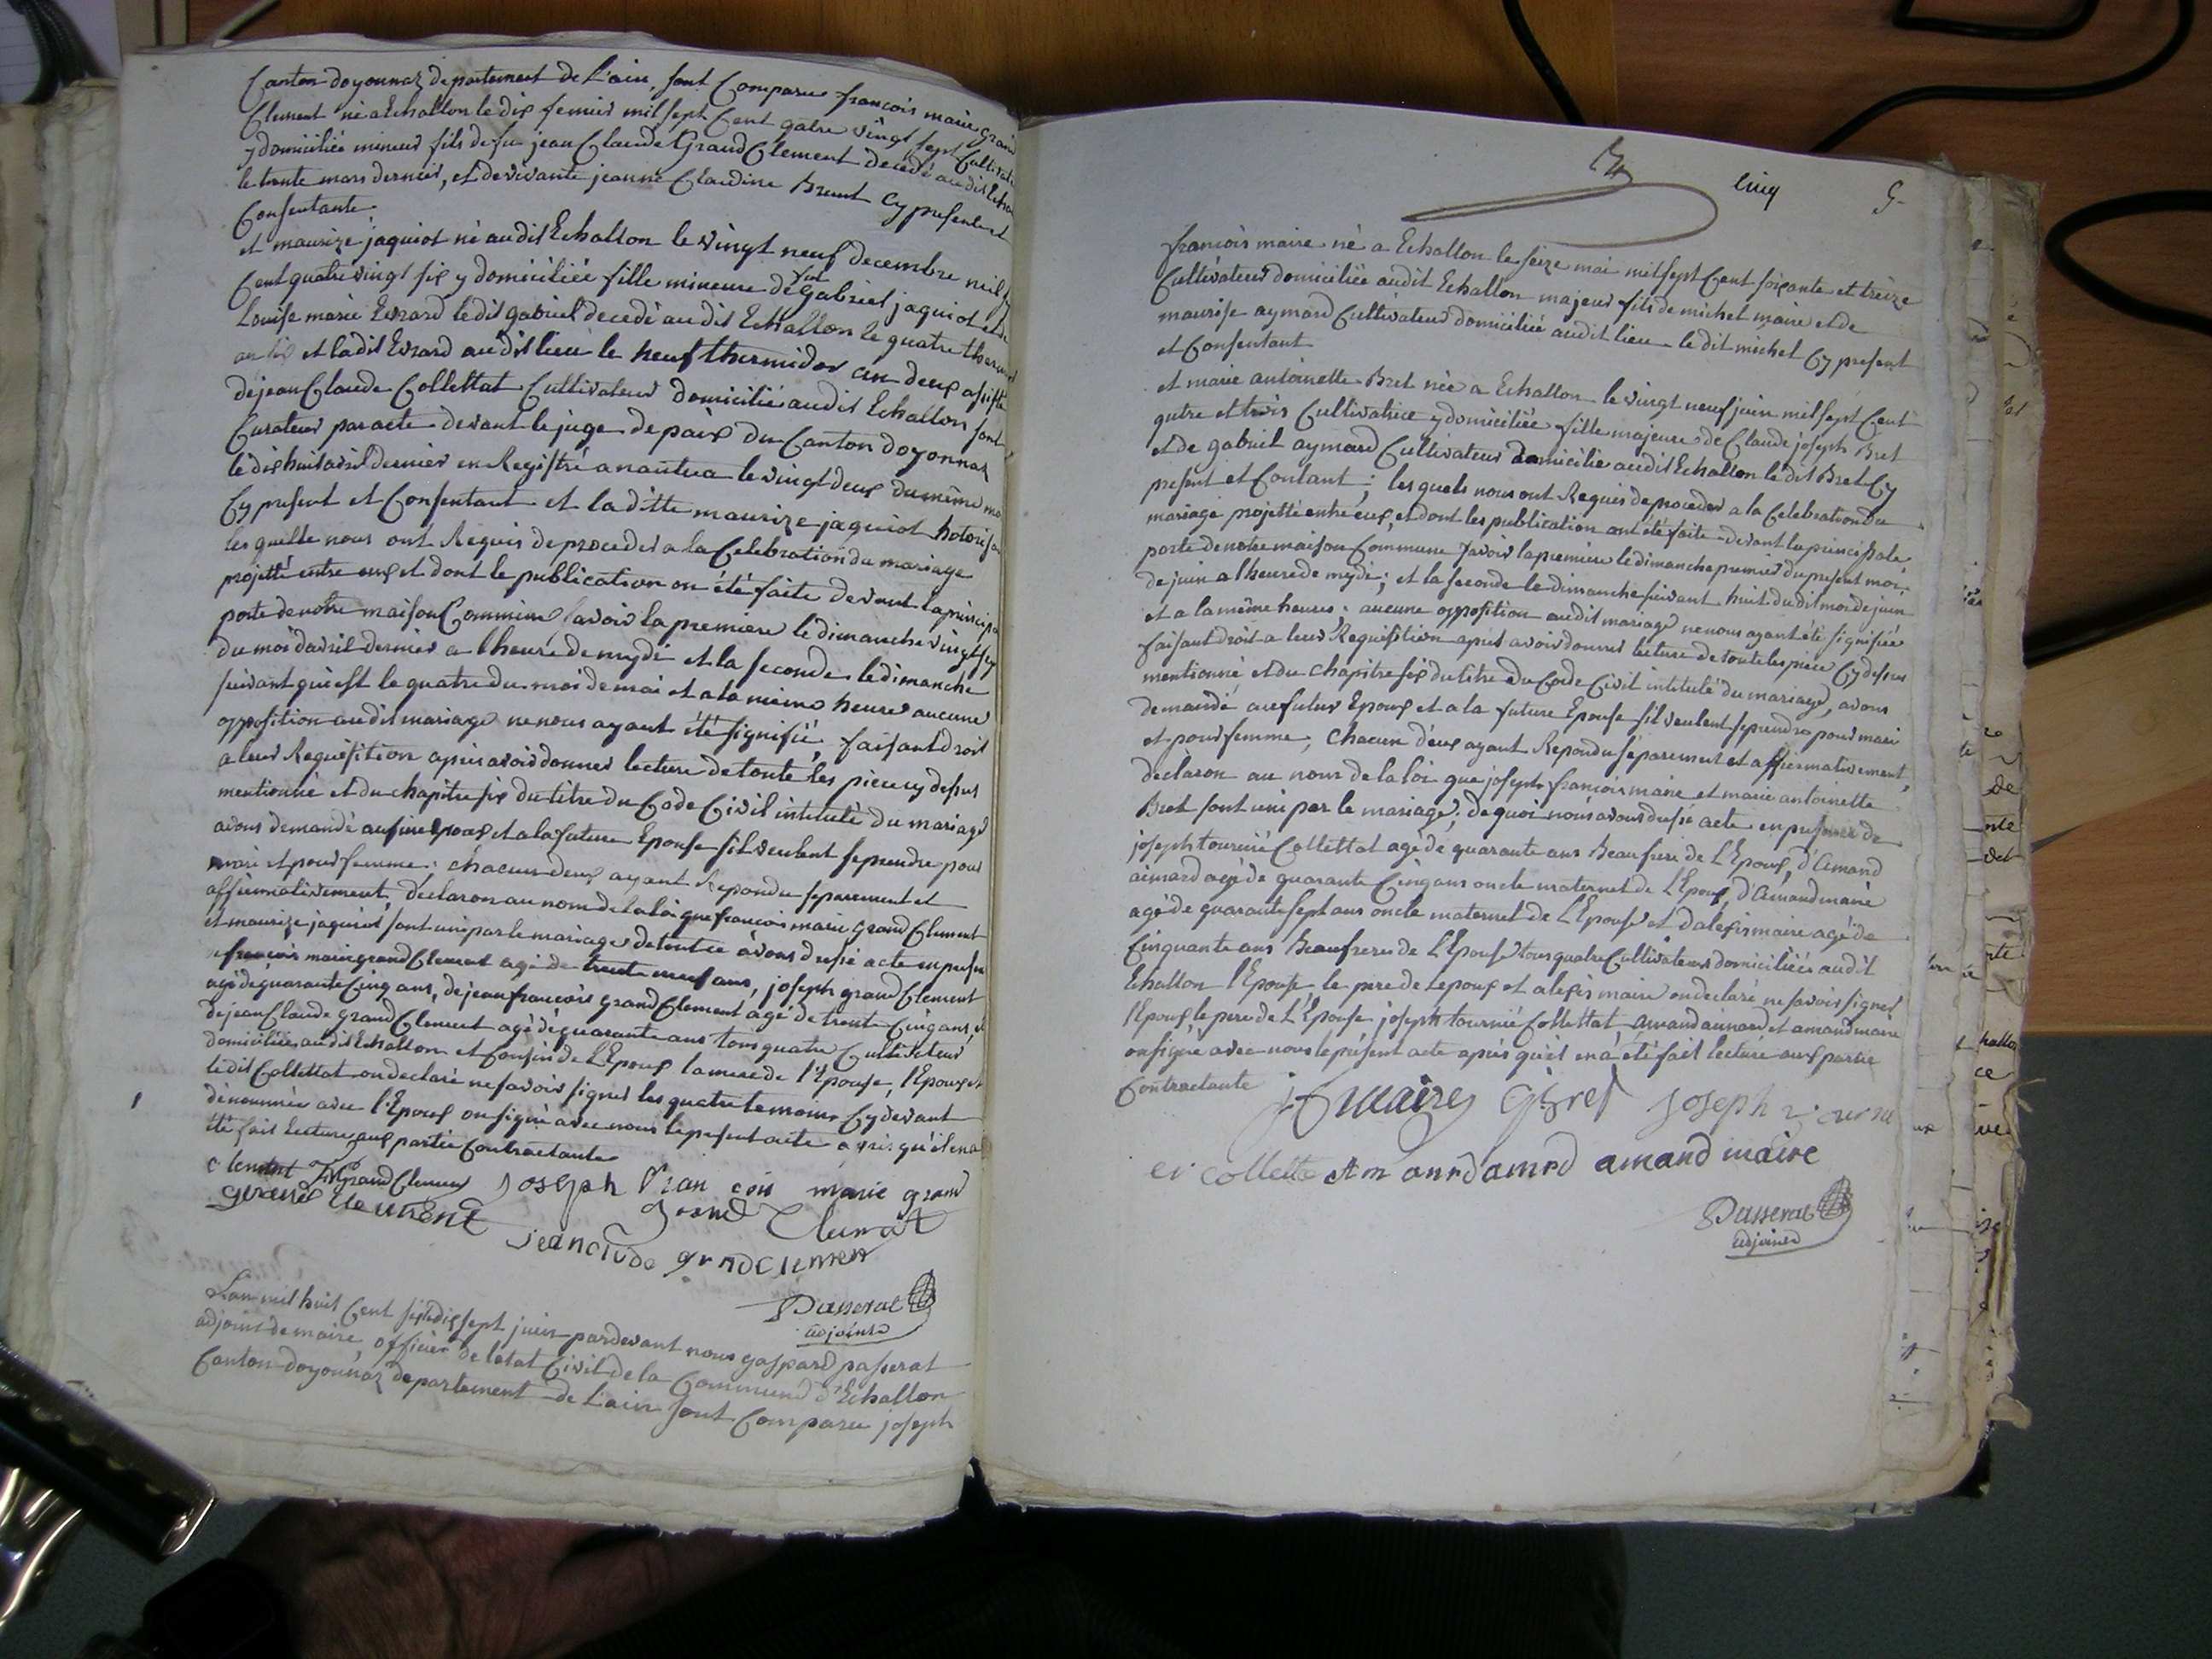 Canton doyonnaz departement de L'ain, sont Comparu francois marie grand
Clement né a Echallon le dix fevrier mil sept Cent qatre vingt sept Cultivate
y domiciliée mineur fils de fu jean Claude Grand Clement decedé audit Echa
le trente mars dernier, et de vivante jeanne Claudine Brunt Cy presente et
Consentante
et maurize jaquiot né audit Echallon le vingt neuf decembre mil
Cent quatre vingt six y domiciliée fille mineure de fut gabriel jaquiot et de
Louise marie Evrard ledit gabriel decedé audit Echallon le quatre therm
an six et ladit Evrard audit lieu le neuf thermidor an deux assisté
de jean Claude Collettat Cultivateur domicilié audit Echallon sont
Curateur par acte devant le juge de paix du Canton doyonnaz
le dix huit avril dernier enRegistré a nantua le vingt deux du même mo
Cy present et Consentant et la ditte maurize jaquiot hotorisa
les quelle nous ont Requis de proceder a la Celebration du mariage
projetté entre eux et dont le publication on été faite devant la principa
porte de notre maison Commune savoir la premiere le dimanche vingt sep
du moi davril dernier a lheure de mydi et la seconde le dimanche
suivant qui est le quatre du moi de mai et a la même heure aucune
opposition audit mariage ne nous ayant été signifié, faisant droit
a leur Requisition apres avoir donner lecture de toute les piece cy desus
mentionné et du chapitre six du titre du Code Civil intitulé du mariage
avons demandé au futur Epoux et a la future Epouse s'il veulent se prendre pour
mari et pour femme; chacun deux ayant Repondu separement et
affirmativement, declaron au nom de la loi que francois marie grand Clement
et maurize jaquiot sont uni par le mariage de tout ce avons dresé acte en presen
francois marie grand Clement agé de trente neuf ans, joseph grand Clement
agé de quarante Cinq ans, de jean francois grand Clement agé de trente Cinq ans, et
de jean Claude grand Clement agé de quarante ans tous quatre Cultivateur
domiciliées audit Echallon et Cousin de L'Epoux la mere de l'Epouse, l'Epoux et
ledit Collettat on declaré ne savoir signer les quatre temoins Cy devant
dénommée avec l'Epoux on signé avec nous le present acte apres qu'il en a
été fait lecture aux partie Contractante
clement JM Grand Clement joseph fran cois marie grand
gerand clement grand Clemat
jean clude grndclemen
Passerat
adjoint
Lan mil huit Cent six le dix sept juin pardevant nous gaspard passerat
adjoint de maire, officier de letat Civil de la Commune d'Echallon
Canton doyonnaz departement de L'ain sont Comparu joseph
cinq 5
francois maire né a Echallon le seize mai mil sept Cent soixante et treize
Cultivateur domiciliée audit Echallon majeur fils de michel maire et de
maurise aymard Cultivateur domiciliée audit lieu le dit michel Cy present
et Consentant
et marie antoinette Bret née a Echallon le vingt neuf juin mil sept Cent
qutre et trois Cultivatrice y domiciliée fille majeure de Claude joseph Bret
et de gabriel aymard Cultivateur domicilié audit Echallon le dit Bret Cy
present et Contant; les quels nous ont Requis de proceder a la Celebration du
mariage projetté entre eux, et dont les publication ont été faite devant la principale
porte de notre maison Commune savoir la premiere le dimanche premier du present moi
de juin a lheure de mydi; et la seconde le dimanche suivant huit dudit moi de juin
et a la même heure: aucune opposition audit mariage ne nous ayant été signifiée
faisant droit a leur Requisition apres avoir donner lecture de toute les piece Cy desus
mentionné et du chapitre six du titre du Code Civil intitulé du mariage, avons
demandé au futur Epoux et a la future Epouse s'il veulent se prendre pour mari
et pour femme, Chacun d'eux ayant Repondu séparement et affirmativement,
declaron au nom de la loi que joseph francois maire et marie antoinette
Bret sont uni par le mariage; de quoi nous avons dresé acte en presence de
joseph tournié Collettat agé de quarante ans Beaufrere de L'Epoux, d'amand
aimard agé de quarante Cinq ans oncle maternel de L'Epoux, d'amand maire
agé de quarante sept ans oncle maternel de L'Epouse et d'alexis maire agé de
Cinquante ans Beaufreres de L'Epouse tous quatre Cultivateurs domiciliée audit
Echallon l'Epouse le pere de Lepoux et alexis maire on declaré ne savoir signer
l'Epoux, le pere de L'Epouse joseph tournié Collettat amand aimard et amand maire
on signé avec nous le présent acte après qu'il en a été fait lecture aux partie
Contractante jf maire CJ Bret joseph tourni
er collette amand amrd amand maire
Passerat
adjoint